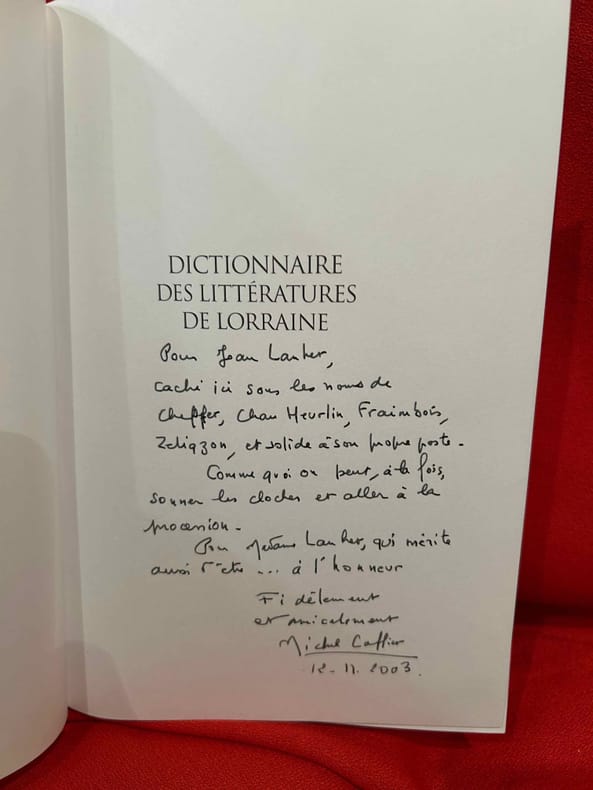 DICTIONNAIRE
DES LITTÉRATURES
DE LORRAINE
Pour Jean Lanher,
caché ici sous les noms de
Chepfer, Chan Heurlin, Fraimbois,
Zeliqzon, et solide à son propre poste.
Comme quoi on peut, à la fois,
sonner les cloches et aller à la
procession.
Pour Madame Lanher, qui mérite
aussi l'être ... à l'honneur
Fidèlement
et amicalement
Michel Caffier
12-11.2003.